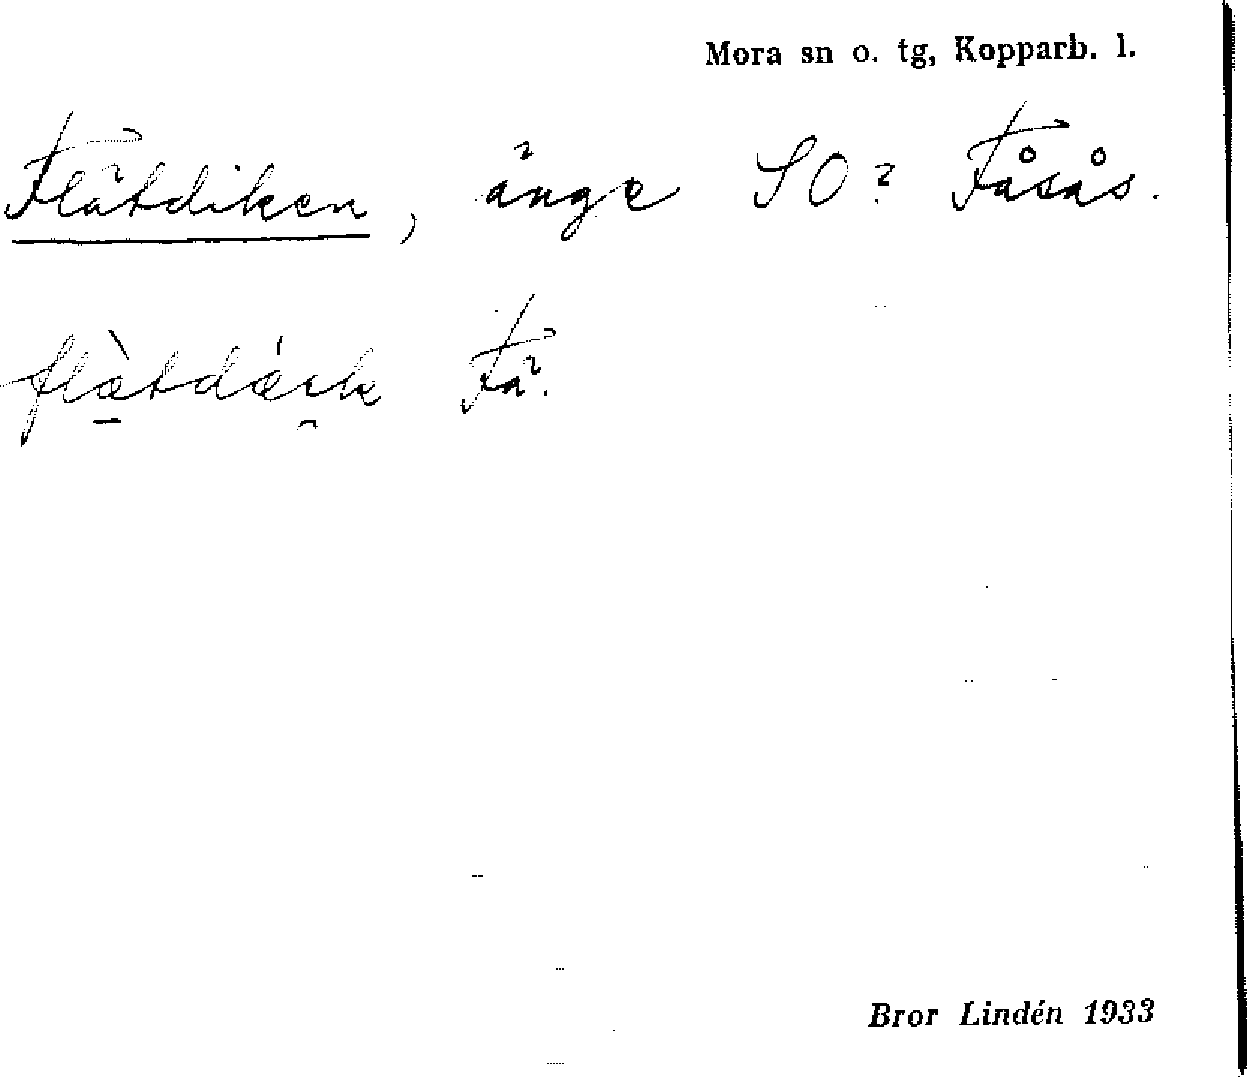 Mora sn o. tg, Kopparb. l.
Flätdiken, änge SO? Fåsås.
Fä.
Bror Lindén 1933